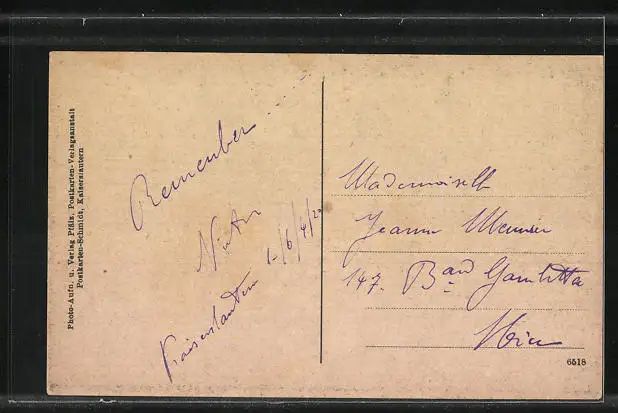 Photo-Aufn. u. Verlag Pfälz. Postkarten-Verlagsanstalt
Postkarten-Schmidt, Kaiserslautern
Remember ....
Kaiserslautern
Mademoiselle
Jeanne Meunier
147. Bard Gambetta
6518